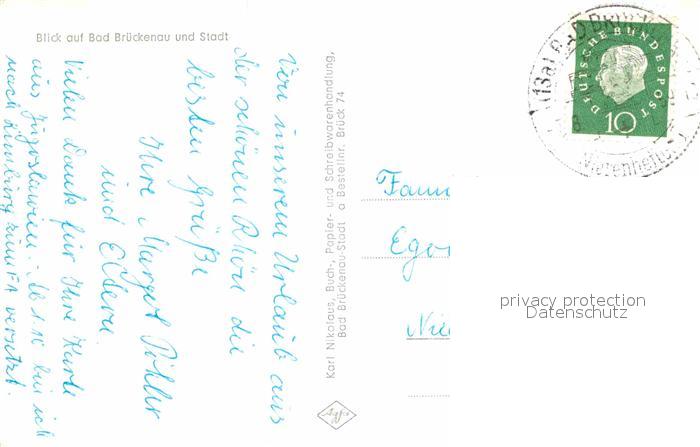 Blick auf Bad Brückenau und Stadt
Von unserem Urlaub aus
der schönen Rhön die
besten Grüße
Ihre Margot
und Eltern.
Vielen Dank für Ihre Karte
aus Jugoslawien. Ab 1.10 bin ich
nach Limburg zum FA versetzt.
Karl Nikolaus, Buch-, Papier- und Schreibwarenhandlung,
Bad Brückenau-Stadt a Bestellnr. Brück 74
Agfa
DEUTSCHE BUNDESPOST
10
(13a) BAD
Nierenheilb
Fam
Ego
Nie
privacy protection
Datenschutz